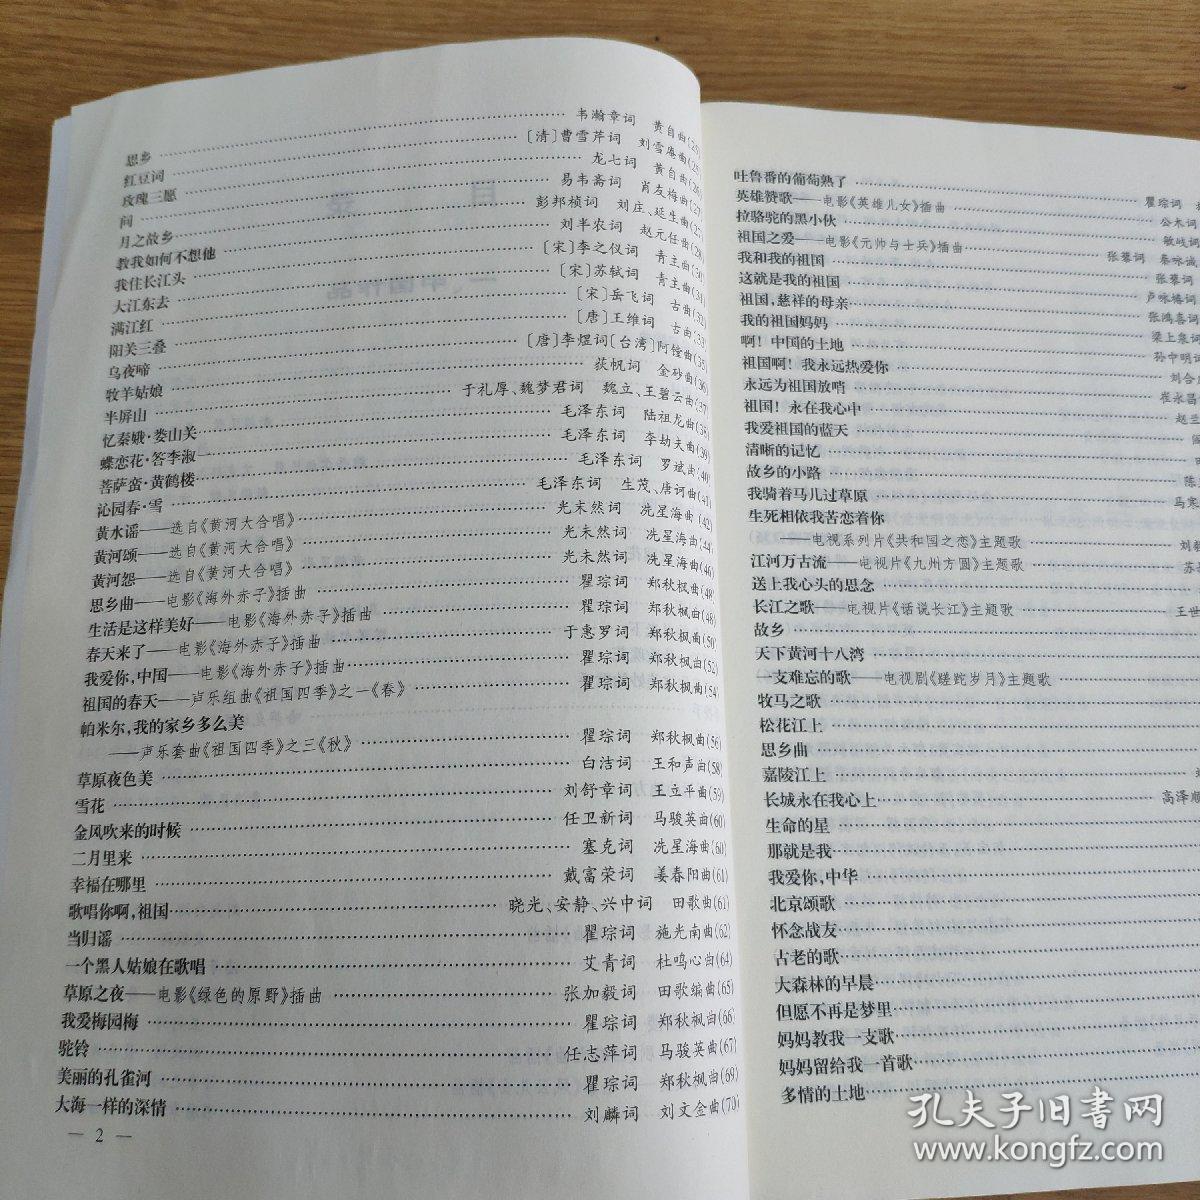 思乡 韦瀚章词 黄自曲(25)
红豆词 〔清〕曹雪芹词 刘雪庵曲(25)
玫瑰三愿 龙七词 黄自曲(26)
问 易韦斋词 肖友梅曲(27)
月之故乡 彭邦桢词 刘庄、延生曲(27)
教我如何不想他 刘半农词 赵元任曲(28)
我住长江头 〔宋〕李之仪词 青主曲(30)
大江东去 〔宋〕苏轼词 青主曲(31)
满江红 〔宋〕岳飞词 古曲(32)
阳关三叠 〔唐〕王维词 古曲(33)
乌夜啼 〔唐〕李煜词〔台湾〕阿镗曲(35)
牧羊姑娘 荻帆词 金砂曲(36)
半屏山 于礼厚、魏梦君词 魏立、王碧云曲(37)
忆秦娥·娄山关 毛泽东词 陆祖龙曲(38)
蝶恋花·答李淑一 毛泽东词 李劫夫曲(39)
菩萨蛮·黄鹤楼 毛泽东词 罗斌曲(40)
沁园春·雪 毛泽东词 生茂、唐诃曲(41)
黄水谣——选自《黄河大合唱》 光未然词 冼星海曲(42)
黄河颂——选自《黄河大合唱》 光未然词 冼星海曲(44)
黄河怨——选自《黄河大合唱》 光未然词 冼星海曲(46)
思乡曲——电影《海外赤子》插曲 瞿琮词 郑秋枫曲(48)
生活是这样美好——电影《海外赤子》插曲 瞿琮词 郑秋枫曲(48)
春天来了——电影《海外赤子》插曲 于惠罗词 郑秋枫曲(50)
我爱你,中国——电影《海外赤子》插曲 瞿琮词 郑秋枫曲(52)
祖国的春天——声乐组曲《祖国四季》之一《春》 瞿琮词 郑秋枫曲(54)
帕米尔,我的家乡多么美
——声乐套曲《祖国四季》之三《秋》 瞿琮词 郑秋枫曲(56)
草原夜色美 白洁词 王和声曲(58)
雪花 刘舒章词 王立平曲(59)
金风吹来的时候 任卫新词 马骏英曲(60)
二月里来 塞克词 冼星海曲(60)
幸福在哪里 戴富荣词 姜春阳曲(61)
歌唱你啊,祖国 晓光、安静、兴中词 田歌曲(61)
当归谣 瞿琮词 施光南曲(62)
一个黑人姑娘在歌唱 艾青词 杜鸣心曲(64)
草原之夜——电影《绿色的原野》插曲 张加毅词 田歌编曲(65)
我爱梅园梅 瞿琮词 郑秋枫曲(66)
驼铃 任志萍词 马骏英曲(67)
美丽的孔雀河 瞿琮词 郑秋枫曲(69)
大海一样的深情 刘麟词 刘文金曲(70)
— 2 —
吐鲁番的葡萄熟了 瞿琮词
英雄赞歌——电影《英雄儿女》插曲 公木词
拉骆驼的黑小伙 敏岐词
祖国之爱——电影《元帅与士兵》插曲
我和我的祖国 张藜词 秦咏诚
这就是我的祖国 张藜词
祖国,慈祥的母亲 卢咏椿词
我的祖国妈妈 张鸿喜词
啊!中国的土地 梁上泉词
祖国啊!我永远热爱你 孙中明词
永远为祖国放哨 刘合
祖国!永在我心中 崔永昌
我爱祖国的蓝天
清晰的记忆
故乡的小路 陈
我骑着马儿过草原 马寒
生死相依我苦恋着你
——电视系列片《共和国之恋》主题歌 刘毅
江河万古流——电视片《九州方圆》主题歌 苏
送上我心头的思念
长江之歌——电视片《话说长江》主题歌 王世
故乡
天下黄河十八湾
一支难忘的歌——电视剧《蹉跎岁月》主题歌
牧马之歌
松花江上
思乡曲
嘉陵江上
长城永在我心上 高泽顺
生命的星
那就是我
我爱你,中华
北京颂歌
怀念战友
古老的歌
大森林的早晨
但愿不再是梦里
妈妈教我一支歌
妈妈留给我一首歌
多情的土地
孔夫子旧书网
www.kongfz.com